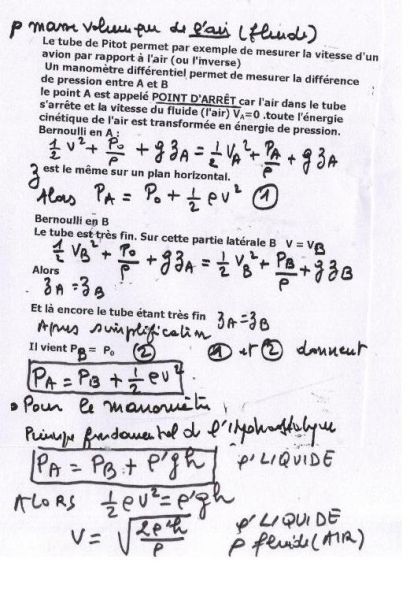 ρ masse volumique de l'air (fluide)
Le tube de Pitot permet par exemple de mesurer la vitesse d'un
avion par rapport à l'air (ou l'inverse)
Un manomètre différentiel permet de mesurer la différence
de pression entre A et B
le point A est appelé POINT D'ARRÊT car l'air dans le tube
s'arrête et la vitesse du fluide (l'air) V_A=0 .toute l'énergie
cinétique de l'air est transformée en énergie de pression.
Bernoulli en A :
1/2 v² + P₀/ρ + g z_A = 1/2 V_A² + P_A/ρ + g z_A
z est le même sur un plan horizontal.
Alors P_A = P₀ + 1/2 ρv² ①
Bernoulli en B
Le tube est très fin. Sur cette partie latérale B V = V_B
1/2 V_B² + P₀/ρ + g z_A = 1/2 V_B² + P_B/ρ + g z_B
Alors
z_A = z_B
Et là encore le tube étant très fin z_A = z_B
Apres simplification
Il vient P_B = P₀ ② ① et ② donnent
P_A = P_B + 1/2 ρv²
• Pour le manomètre
Principe fondamental de l'hydrostatique
P_A = P_B + ρ'gh ρ' LIQUIDE
ALORS 1/2 ρv² = ρ'gh
V = √(2ρ'h/ρ) ρ' LIQUIDE
ρ fluide (AIR)